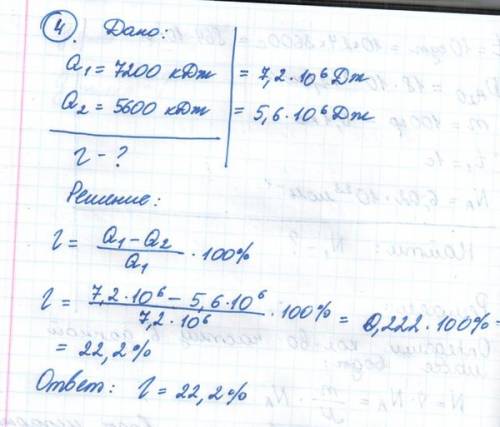 4 Дано:
Q1 = 7200 кДж = 7,2·10⁶ Дж
Q2 = 5600 кДж = 5,6·10⁶ Дж
η - ?
Решение:
η = (Q1 - Q2)/Q1 · 100%
η = (7,2·10⁶ - 5,6·10⁶)/(7,2·10⁶) · 100% = 0,222·100% =
= 22,2%
Ответ: η = 22,2%